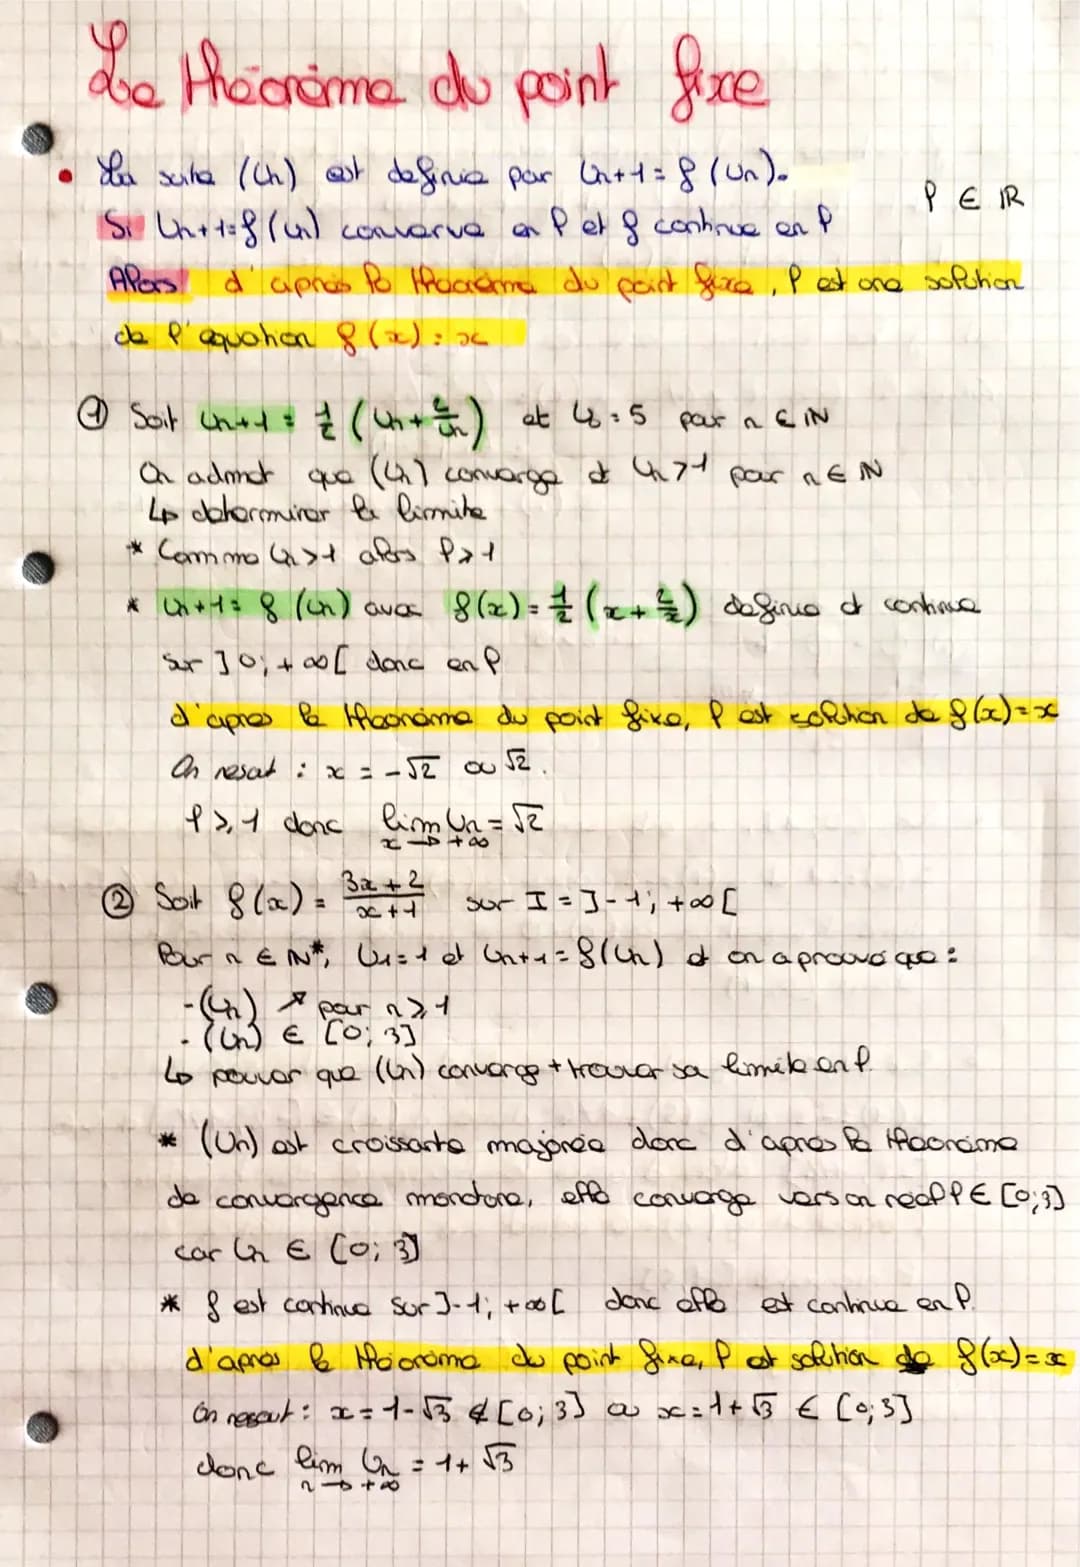 Le théorème du point fixe
• La suite (Un) est définie par Un+1 = f(Un).
ℓ ∈ ℝ
Si Un+1=f(Un) converve en ℓ et f continue en ℓ
Alors d'après le théorème du point fixe, ℓ est une solution
de l'équation f(x) = x
① Soit Un+1 = 1/2 (Un + 2/Un) et U0 = 5 pour n ∈ ℕ
On admet que (Un) converge et Un>1 pour n ∈ ℕ
↳ déterminer la limite
* Comme Un>1 alors ℓ⩾1
* Un+1 = f(Un) avec f(x) = 1/2 (x + 2/x) définie et continue
sur ]0; +∞[ donc en ℓ
d'après le théorème du point fixe, ℓ est solution de f(x)=x
On résout : x = -√2 ou √2.
ℓ⩾1 donc lim Un = √2
x→+∞
② Soit f(x) = (3x+2)/(x+1) sur I = ]-1; +∞[
Pour n ∈ ℕ*, U1=1 et Un+1 = f(Un) et on a prouvé que :
- (Un) ↗ pour n⩾1
- (Un) ∈ [0; 3]
↳ pouver que (Un) converge + trouver sa limite en ℓ.
* (Un) est croissante majorée donc d'après le théorème
de convergence monotone, elle converge vers un réel ℓ ∈ [0;3]
car Un ∈ [0; 3]
* f est continue sur ]-1; +∞[ donc elle est continue en ℓ.
d'après le théorème du point fixe, ℓ est solution de f(x)=x
On résout : x = 1-√3 ∉ [0; 3] ou x = 1+√3 ∈ [0;3]
donc lim Un = 1+√3
n→+∞